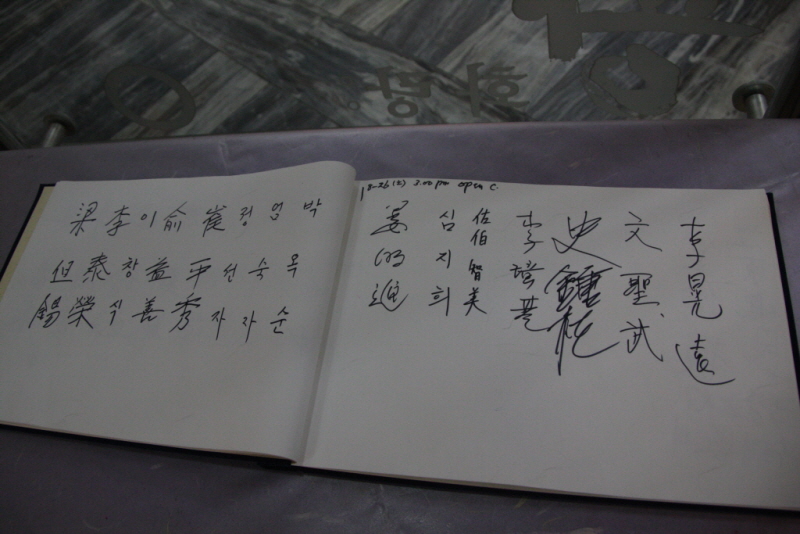 3.00 pm open
李晃遠
文聖武
史鐘
李
佐伯智美
심지희
姜明進
박옥순
엄숙자
정선자
崔平秀
俞益善
이창식
李泰榮
梁但錫